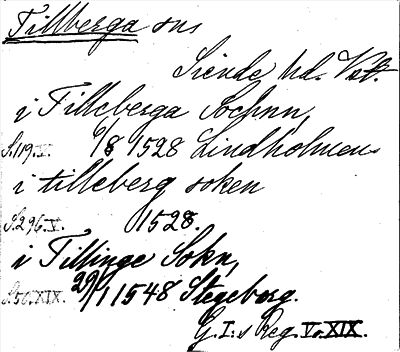 Tillberga sn
Siende hd. Vstl.
i Tilleberga Sochnn,
S. 119. V. 6/8 1528 Lindholmen
i tilleberg soken
S. 296. V. 1528.
i Tillinge Sokn,
S. 50. XIX. 29/1 1548 Stegeborg.
G. I:s Reg. V o. XIX.